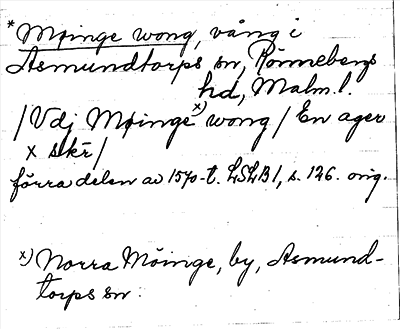 *Møinge wong, vång i
Asmundtorps sn, Rönnebergs
hd, Malm.l.
/Vdj Møinge x) wong/ En ager
x skr/
förra delen av 1570-t. LSLB 1, s. 126. orig.
x) Norra Möinge, by, Asmund-
torps sn.